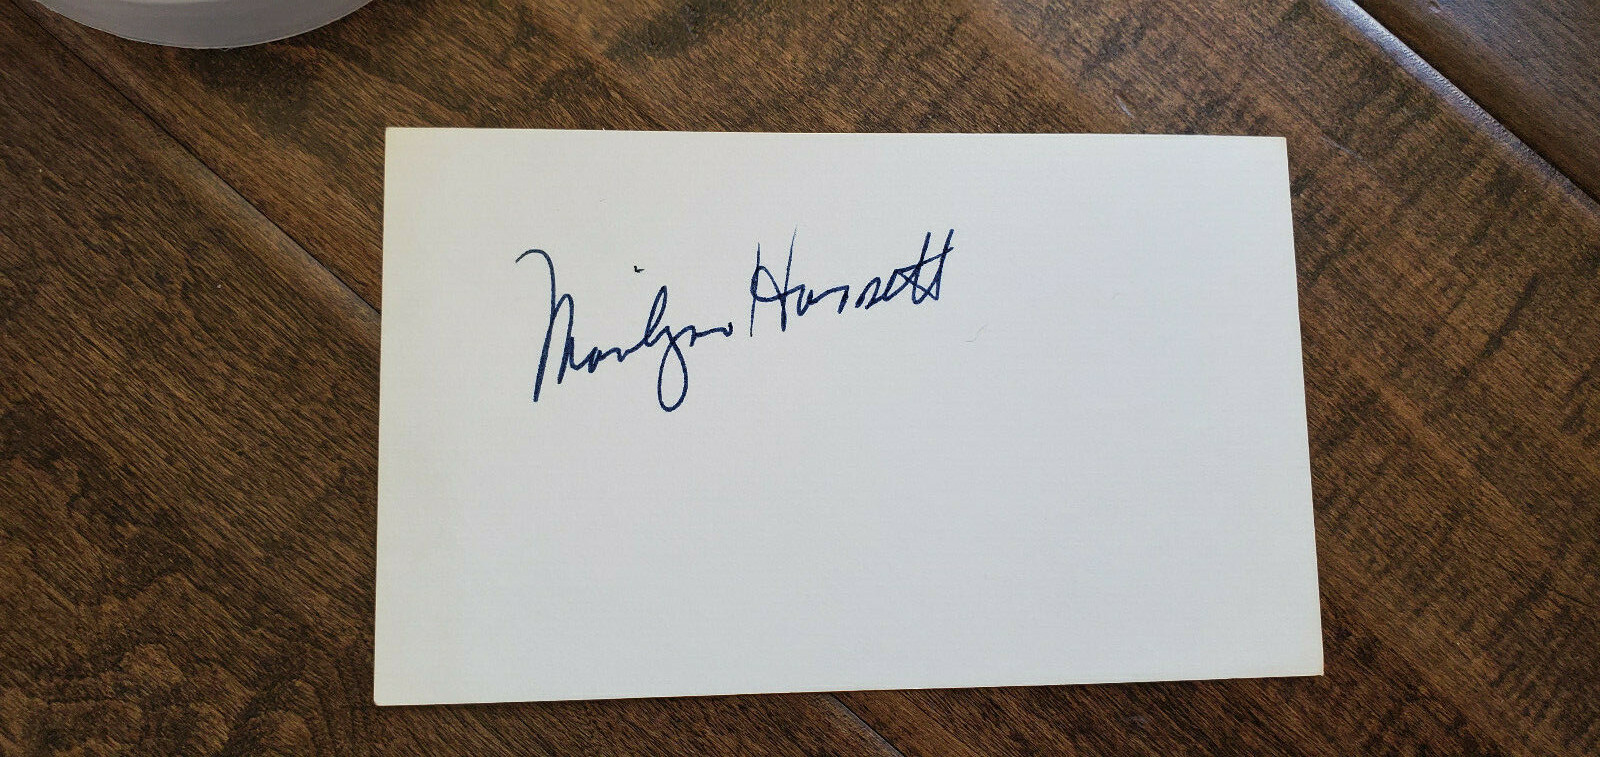 Marilyn Hassett